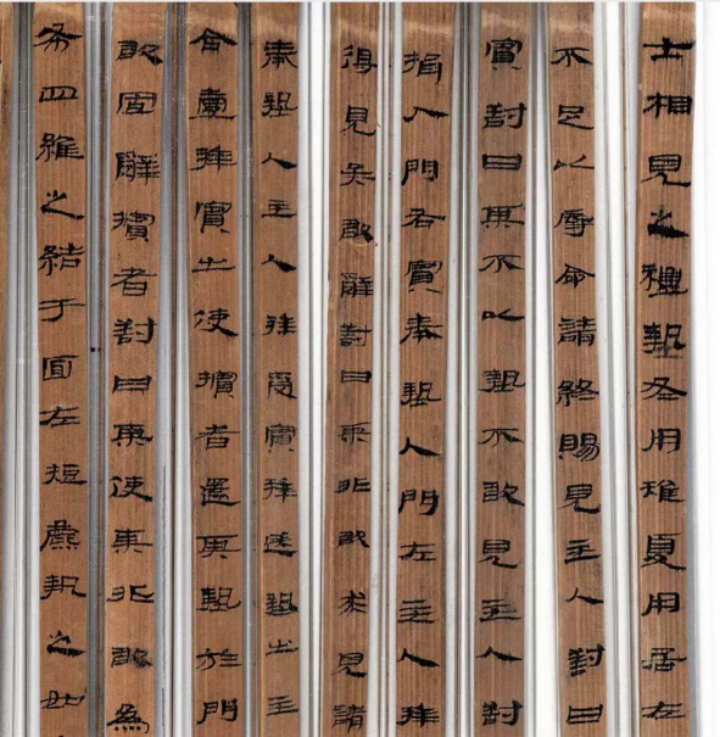 士相見之禮摯冬用雉夏用居左
不足以辱命請終賜見主人對曰
賓對曰某不以摯不敢見主人對
揖入門右賓奉摯入門左主人拜
得見矣敢辭對曰某非敢求見請
奉摯入主人拜受賓拜送摯出主
合壹拜賓出使擯者還其摯於門
敢固辭擯者對曰某使某非敢為
布四維之結于面左麃執之如